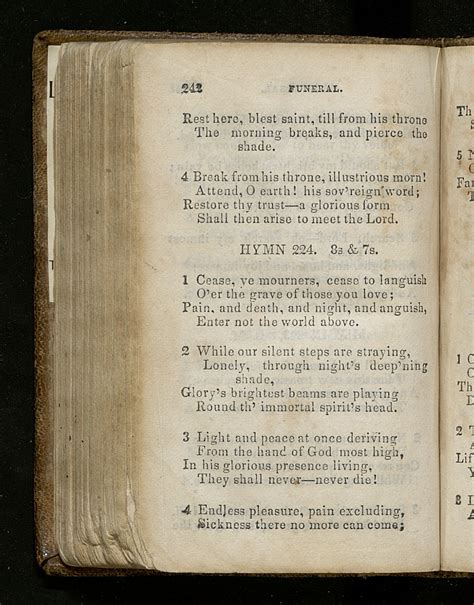 242 FUNERAL.
Rest here, blest saint, till from his throne
The morning breaks, and pierce the
shade.
4 Break from his throne, illustrious morn!
Attend, O earth! his sov'reign word;
Restore thy trust—a glorious form
Shall then arise to meet the Lord.
HYMN 224. 8s & 7s.
1 Cease, ye mourners, cease to languish
O'er the grave of those you love;
Pain, and death, and night, and anguish,
Enter not the world above.
2 While our silent steps are straying,
Lonely, through night's deep'ning
shade,
Glory's brightest beams are playing
Round th' immortal spirit's head.
3 Light and peace at once deriving
From the hand of God most high,
In his glorious presence living,
They shall never—never die!
4 Endless pleasure, pain excluding,
Sickness there no more can come;
Th
5
Fai
1
Th
2
Lif
3